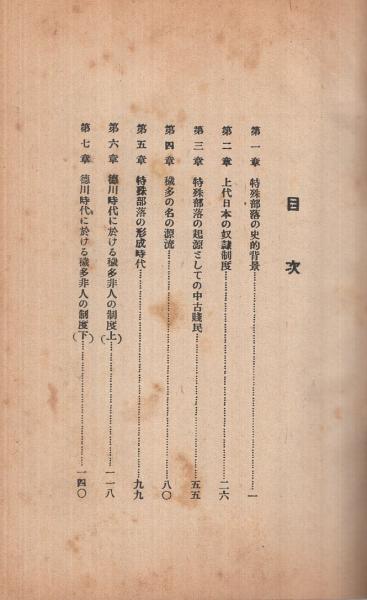 目次
第一章 特殊部落の史的背景……………一
第二章 上代日本の奴隷制度……………二六
第三章 特殊部落の起源としての中古賤民……………五五
第四章 穢多の名の源流……………八〇
第五章 特殊部落の形成時代……………九九
第六章 德川時代に於ける穢多非人の制度(上)……………一一八
第七章 德川時代に於ける穢多非人の制度(下)……………一四〇